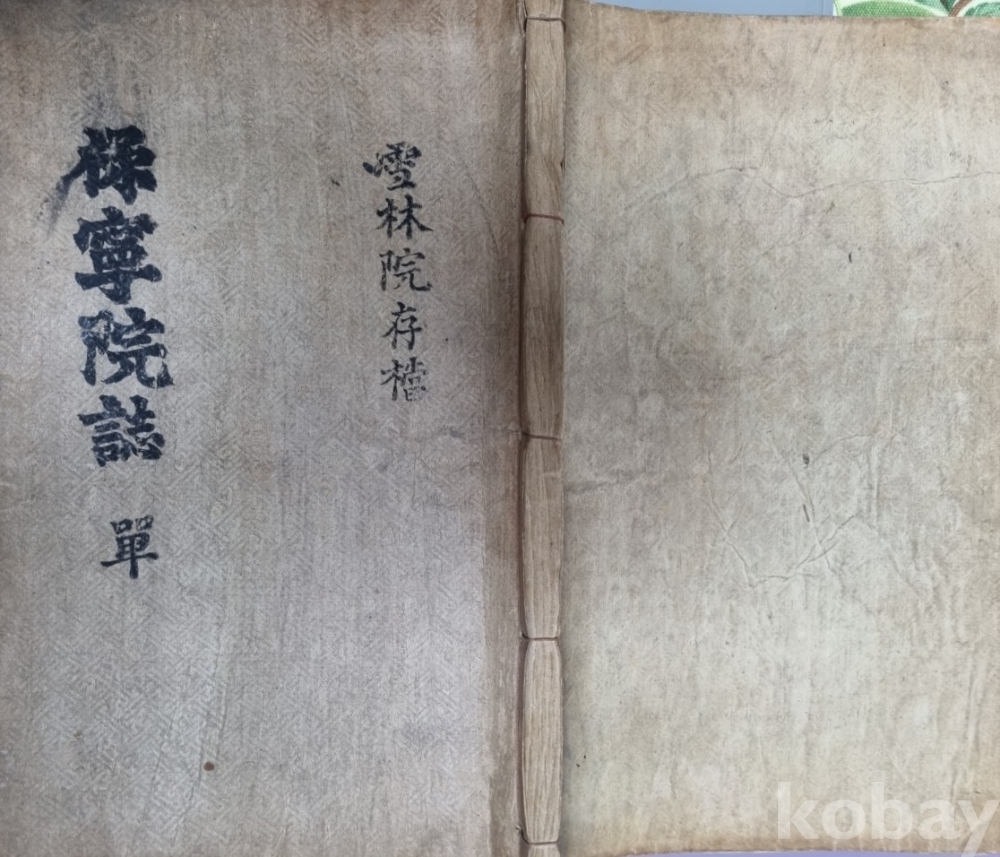 雪林院存檔
保寧院誌 單
kobay